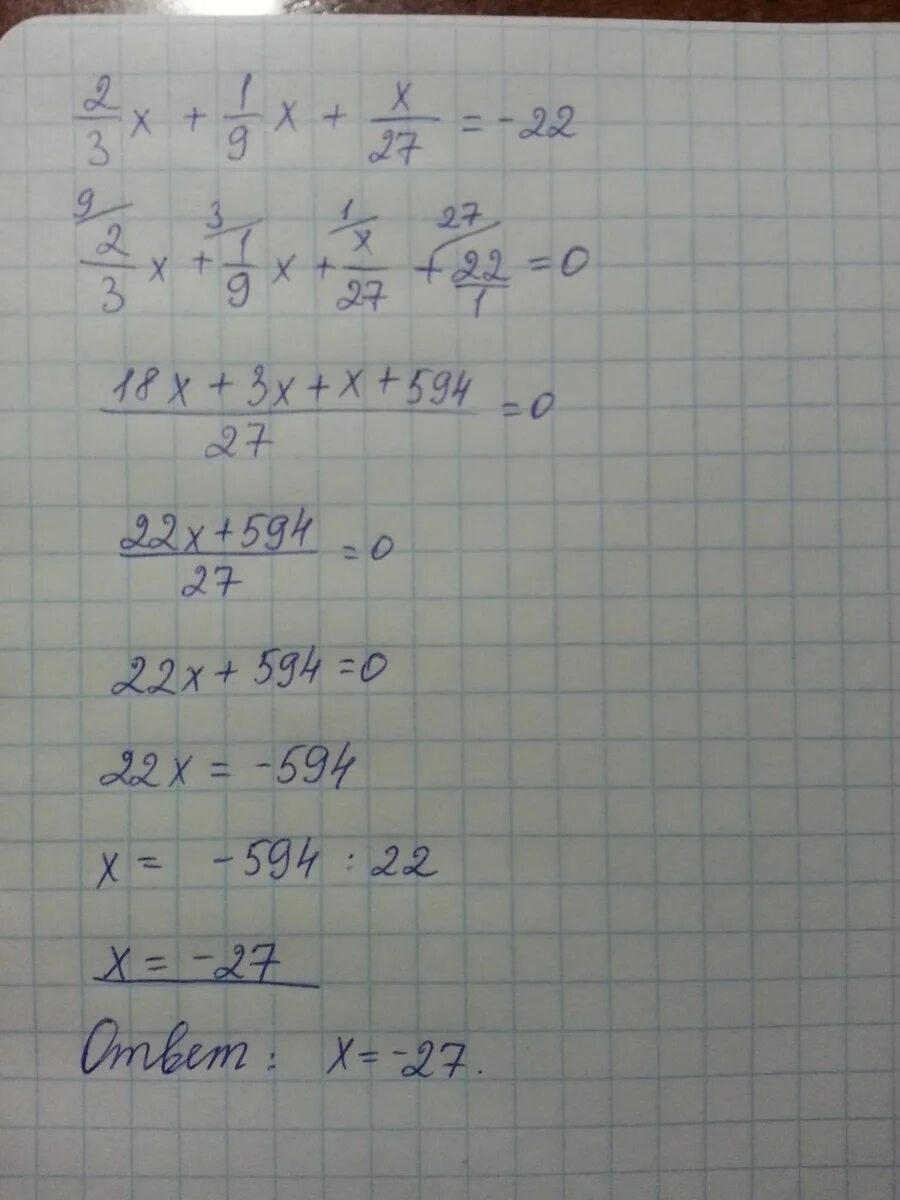 2/3 x + 1/9 x + x/27 = -22
9/ 2/3 x + 3/ 1/9 x + 1/ x/27 + 27/ 22/1 = 0
18x + 3x + x + 594 / 27 = 0
22x + 594 / 27 = 0
22x + 594 = 0
22x = -594
x = -594 : 22
x = -27
Ответ: x = -27.